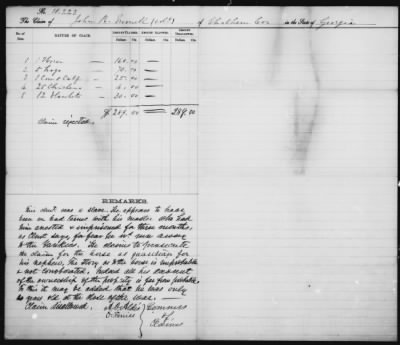 No. 18.223
The Claim of John R. (Col'd) of Chatham Co. in the State of Georgia
No. of Item. NATURE OF CLAIM. Amount Claimed. Amount Allowed. Amount Disallowed.
Dollars. Cts. Dollars. Cts. Dollars. Cts.
1 1 Horse — 160.00 —
2 Hogs — 70.00 —
3 1 Cow & Calf — 25.00 —
4 25 Chickens — 00 —
5 12 Blankets — 00 —
00 00
Claim rejected.
REMARKS.
This cl'm't was a slave. He appears to have
been on bad terms with his master who had
him arrested & imprisoned for three months,
as Cl'm't says for fear he w'd run away
to the Yankees. He claims to prosecute
the claim for the horse as guardian for
his nephew. The story as to the horse is improbable
& not corroborated. Indeed all his account
of the ownership of the prop'ty is far from probable,
to this it may be added that he was only
years old at the close of the war. —
Claim disallowed. A. O. Aldis Commrs
O. Ferriss of
Claims